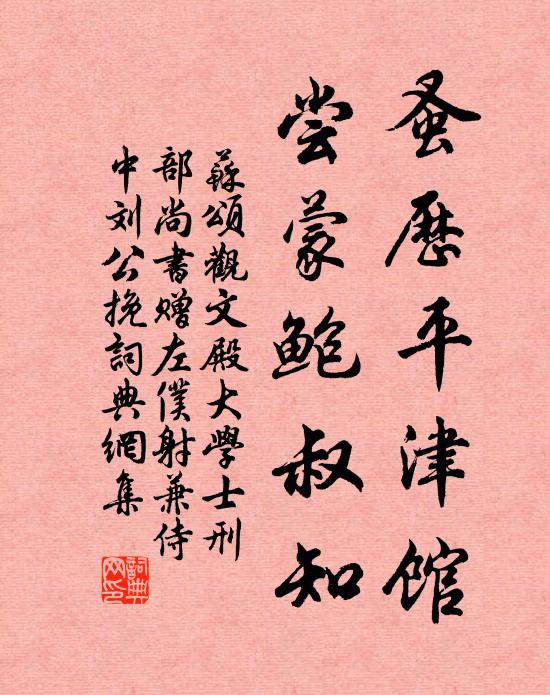 蚤歷平津館
尝蒙鲍叔知
蘇頌觀文殿大學士刑
部尚書赠左僕射兼侍
中刘公挽詞典網集
詞典
网印